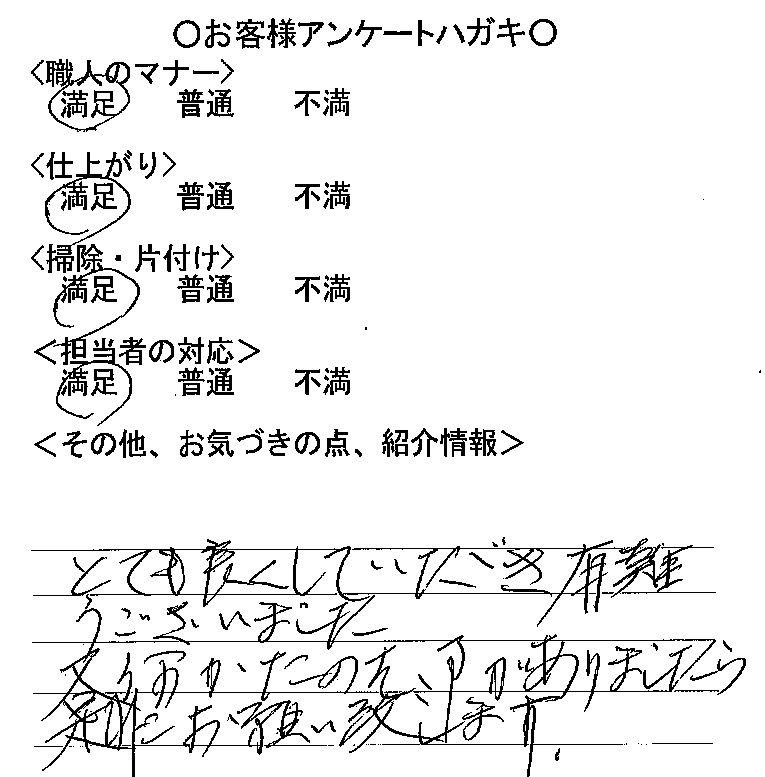 〇お客様アンケートハガキ〇
<職人のマナー>
満足 普通 不満
<仕上がり>
満足 普通 不満
<掃除・片付け>
満足 普通 不満
<担当者の対応>
満足 普通 不満
<その他、お気づきの点、紹介情報>
とても良くしていただき有難
うございました
又 がありましたら
お願い致します.